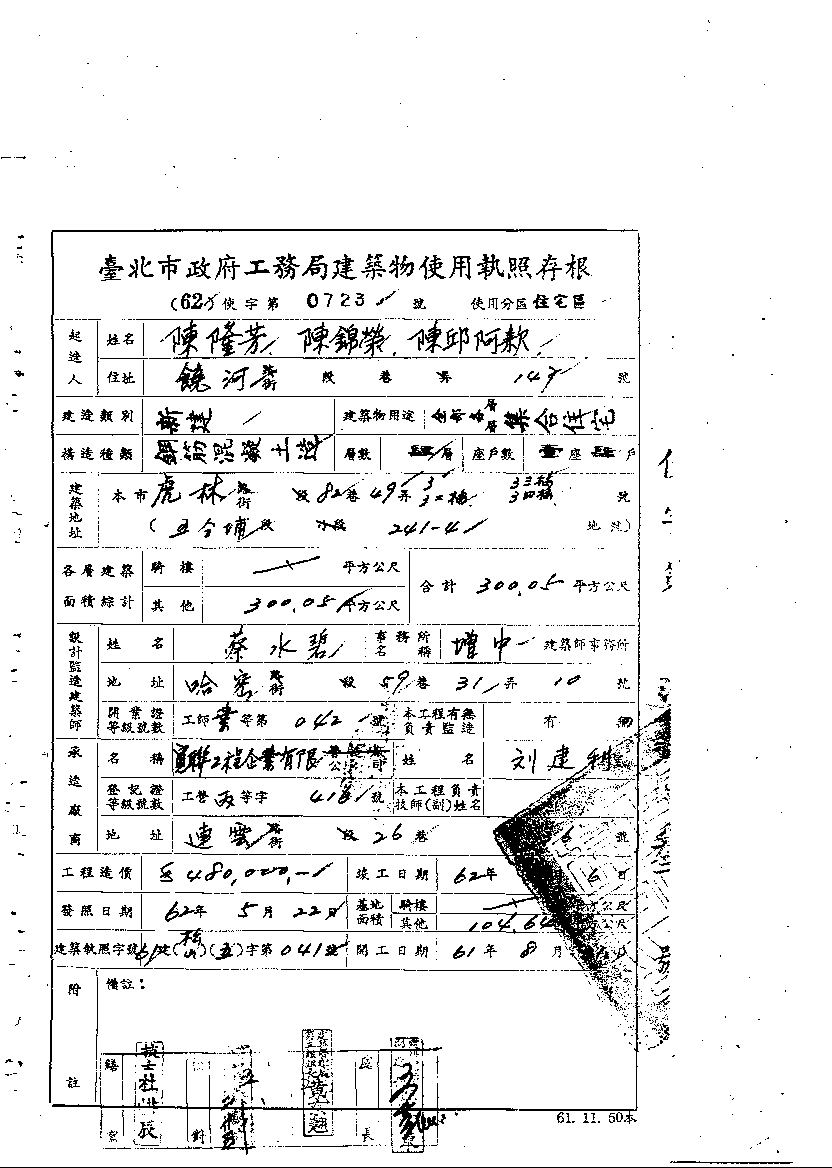 臺北市政府工務局建築物使用執照存根
(62)使字第 0723 號 使用分區 住宅區
起造人 姓名 陳隆芳、陳錦榮、陳邱阿款
住址 饒河街 段 巷 弄 149 號
建造類別 新建 建築物用途 層層集合住宅
構造種類 鋼筋混凝土造 層數 肆層 座戶數 壹座肆戶
建築地址 本市 虎林路街 段 82 巷 49 弄 3 3二樓 3三樓 3四樓 號
(五分埔段 小段 241-4 地號)
各層建築面積綜計 騎樓 平方公尺 合計 300.05 平方公尺
其他 300.05 平方公尺
設計監造建築師 姓名 蔡水碧 事務所名稱 增中 建築師事務所
地址 哈密路街 段 59 巷 31 弄 10 號
開業證等級號數 工師 業 等第 042 號 本工程有無負責監造 有
承造廠商 名稱 聯工程企業有限公司 姓名 刘建
登記證等級號數 工營 丙 等字 號 本工程負責技師(副)姓名
地址 連雲路街 段 26 巷 6 號
工程造價 480,000,- 竣工日期 62年 6日
發照日期 62年 5月 22日 基地面積 騎樓 平方公尺
其他 104.64 平方公尺
建築執照字號 61建(松山)(五)字第041號 開工日期 61年 8月
附註 備註:
技士杜
長
61. 11. 50本